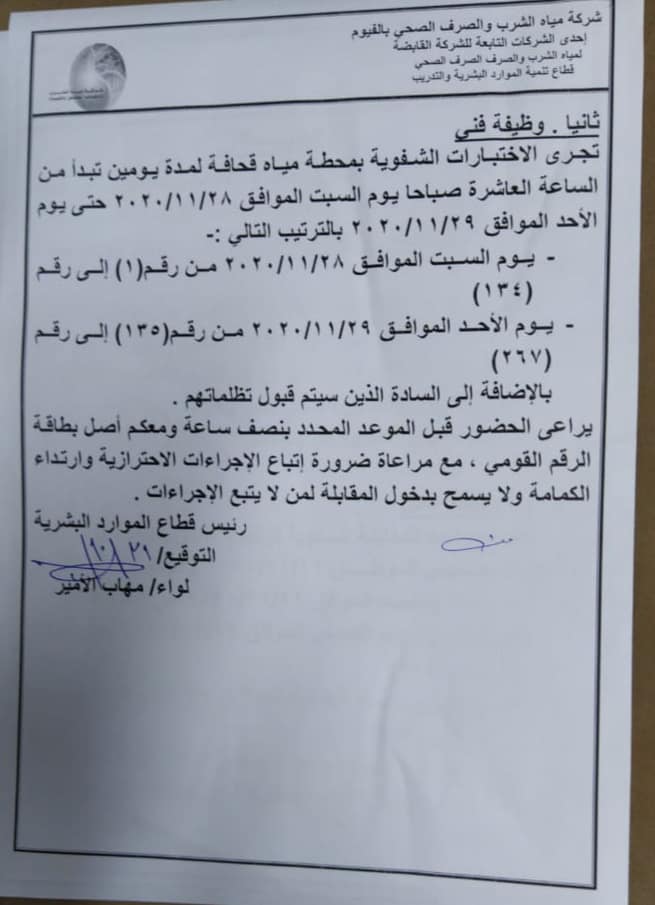 شركة مياه الشرب والصرف الصحي بالفيوم
إحدى الشركات التابعة للشركة القابضة
لمياه الشرب والصرف الصرف الصحي
قطاع تنمية الموارد البشرية والتدريب
ثانيا . وظيفة فني
تجرى الاختبارات الشفوية بمحطة مياه قحافة لمدة يومين تبدأ من
الساعة العاشرة صباحا يوم السبت الموافق ٢٠٢٠/١١/٢٨ حتى يوم
الأحد الموافق ٢٠٢٠/١١/٢٩ بالترتيب التالي :-
- يوم السبت الموافق ٢٠٢٠/١١/٢٨ من رقم(١) إلى رقم
(١٣٤)
- يوم الأحد الموافق ٢٠٢٠/١١/٢٩ من رقم(١٣٥) إلى رقم
(٢٦٧)
بالإضافة إلى السادة الذين سيتم قبول تظلماتهم .
يراعى الحضور قبل الموعد المحدد بنصف ساعة ومعكم أصل بطاقة
الرقم القومي ، مع مراعاة ضرورة إتباع الإجراءات الاحترازية وارتداء
الكمامة ولا يسمح بدخول المقابلة لمن لا يتبع الإجراءات .
رئيس قطاع الموارد البشرية
التوقيع/
لواء/ مهاب الأمير